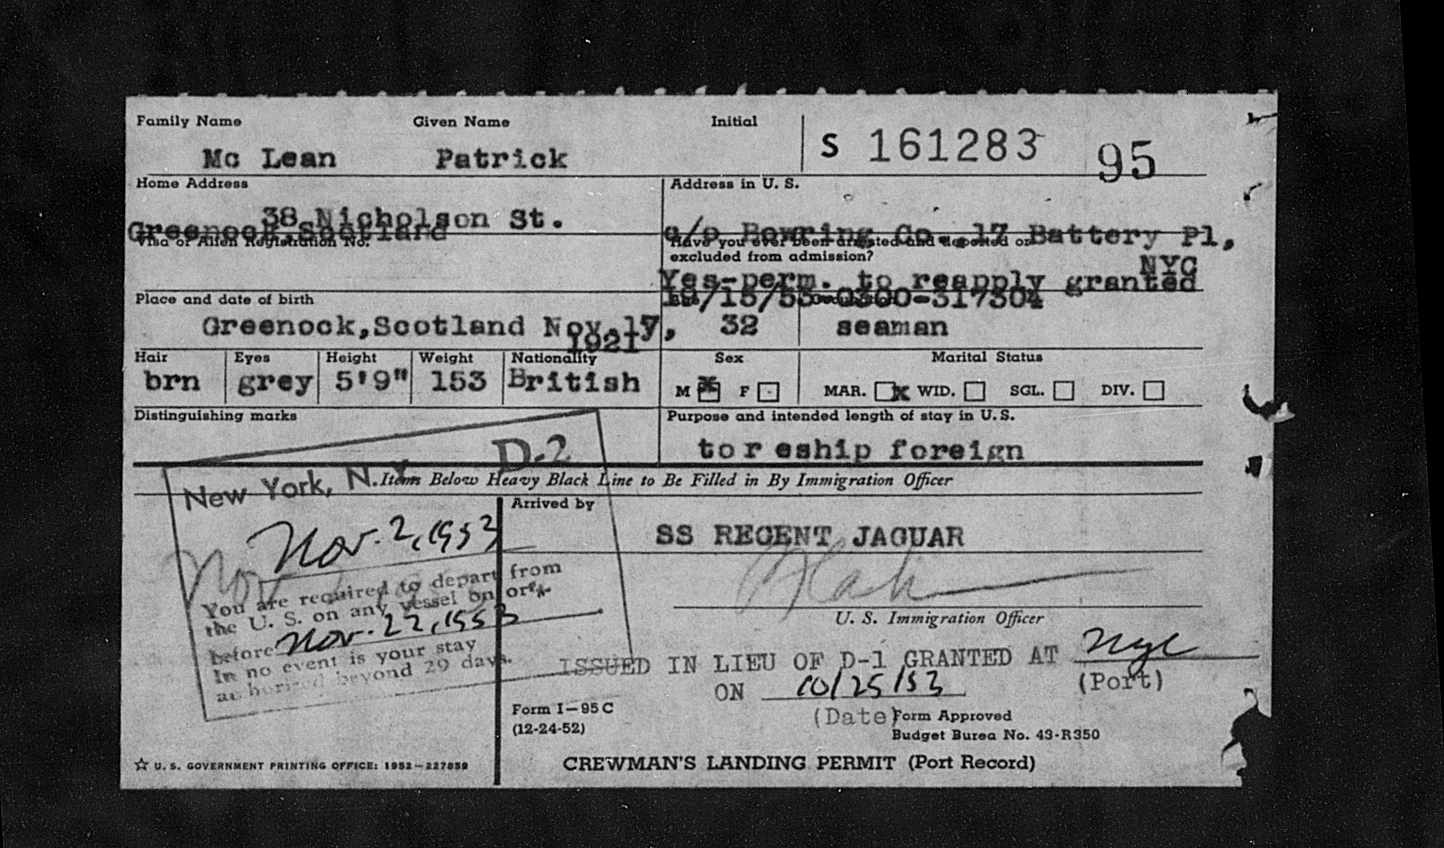 Family Name Given Name Initial
Mc Lean Patrick S 161283 95
Home Address Address in U. S.
38 Nicholson St.
Greenock,Scotland c/o Bowring Co. 17 Battery Pl,
NYC
Visa or Alien Registration No. Have you ever been arrested and deported or
excluded from admission?
Yes-perm. to reapply granted
/15/53-0300-317304
Place and date of birth
Greenock,Scotland Nov.17, 32 seaman
1921
Hair Eyes Height Weight Nationality Sex Marital Status
brn grey 5'9" 153 British M x F MAR. x WID. SGL. DIV.
Distinguishing marks Purpose and intended length of stay in U.S.
D-2 tor eship foreign
New York, N.Y. Items Below Heavy Black Line to Be Filled in By Immigration Officer
Arrived by
Nov. 2, 1953 SS REGENT JAGUAR
Nov
You are required to depart from
the U. S. on any vessel on or
before Nov. 22, 1953
In no event is your stay
authorized beyond 29 days.
U. S. Immigration Officer
ISSUED IN LIEU OF D-1 GRANTED AT nyc
ON 10/25/53 (Port)
(Date)
Form I-95 C Form Approved
(12-24-52) Budget Burea No. 43-R350
☆ U. S. GOVERNMENT PRINTING OFFICE: 1952-227859 CREWMAN'S LANDING PERMIT (Port Record)